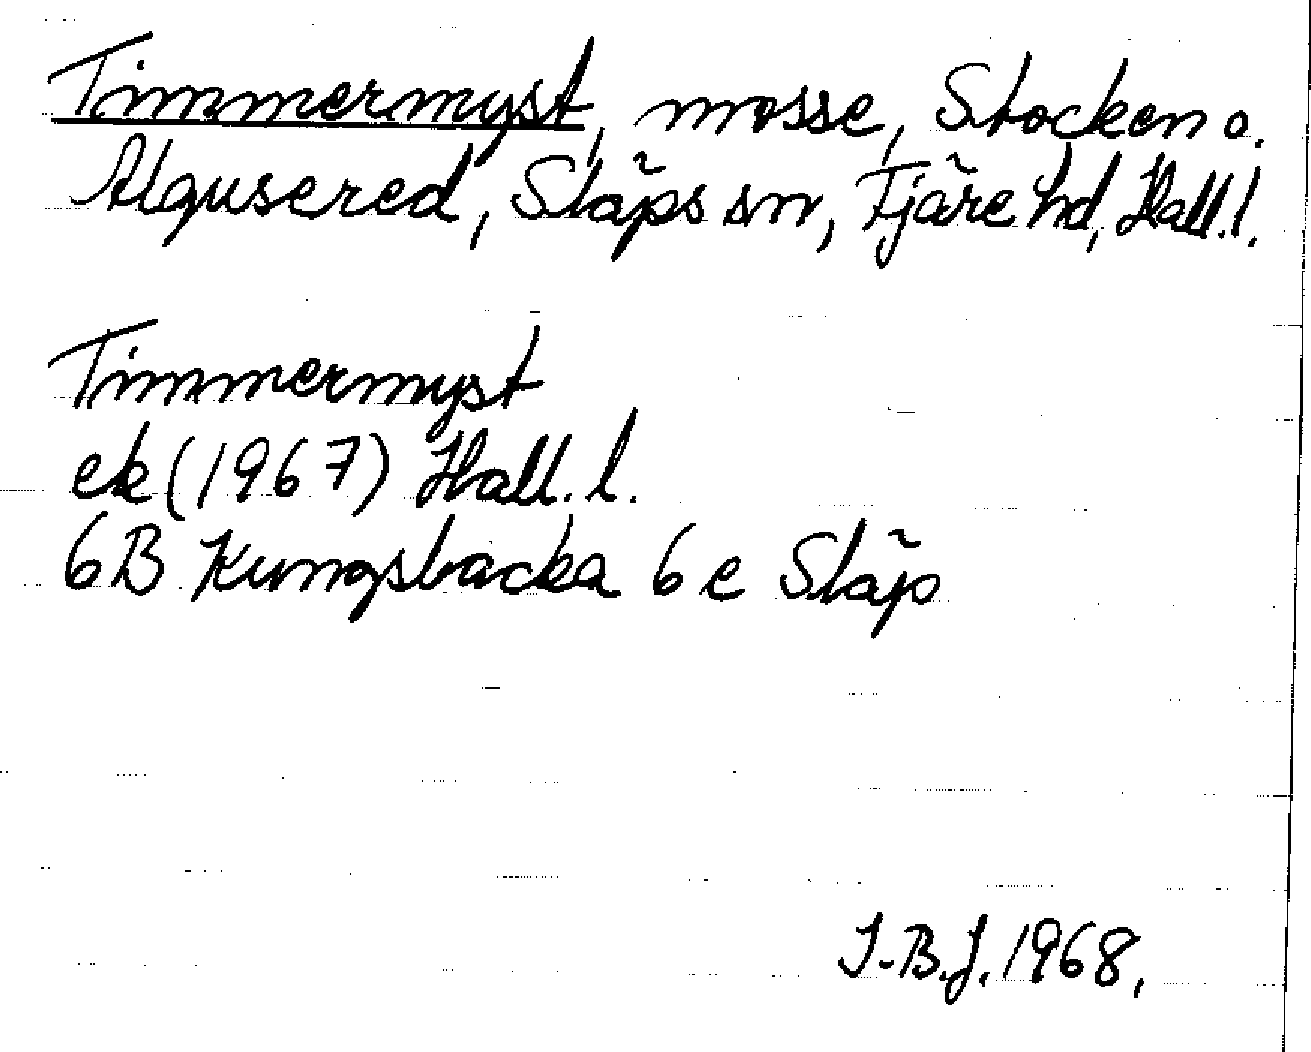 Timmermyst, mosse, Stocken o.
Algusered, Släps sn, Fjäre hd, Hall.l.
Timmermyst
ek (1967) Hall. l.
6B Kungsbacka 6 e Släp
I.B.J. 1968.